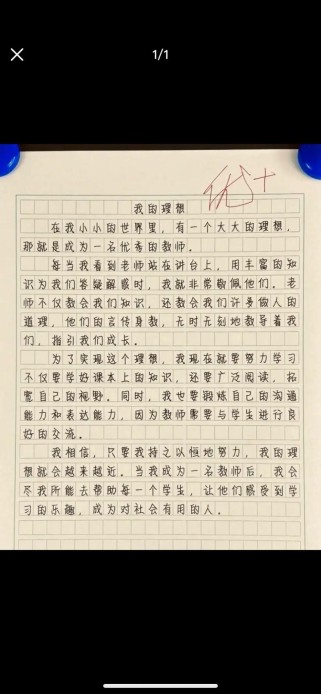 1/1
优+
我的理想
在我小小的世界里，有一个大大的理想，
那就是成为一名优秀的教师。
每当我看到老师站在讲台上，用丰富的知
识为我们答疑解惑时，我就非常敬佩他们。老
师不仅教会我们知识，还教会我们许多做人的
道理，他们的言传身教，无时无刻地教导着我
们，指引我们成长。
为了实现这个理想，我现在就要努力学习
不仅要学好课本上的知识，还要广泛阅读，拓
宽自己的视野。同时，我也要锻炼自己的沟通
能力和表达能力，因为教师需要与学生进行良
好的交流。
我相信，只要我持之以恒地努力，我的理
想就会越来越近。当我成为一名教师后，我会
尽我所能去帮助每一个学生，让他们感受到学
习的乐趣，成为对社会有用的人。